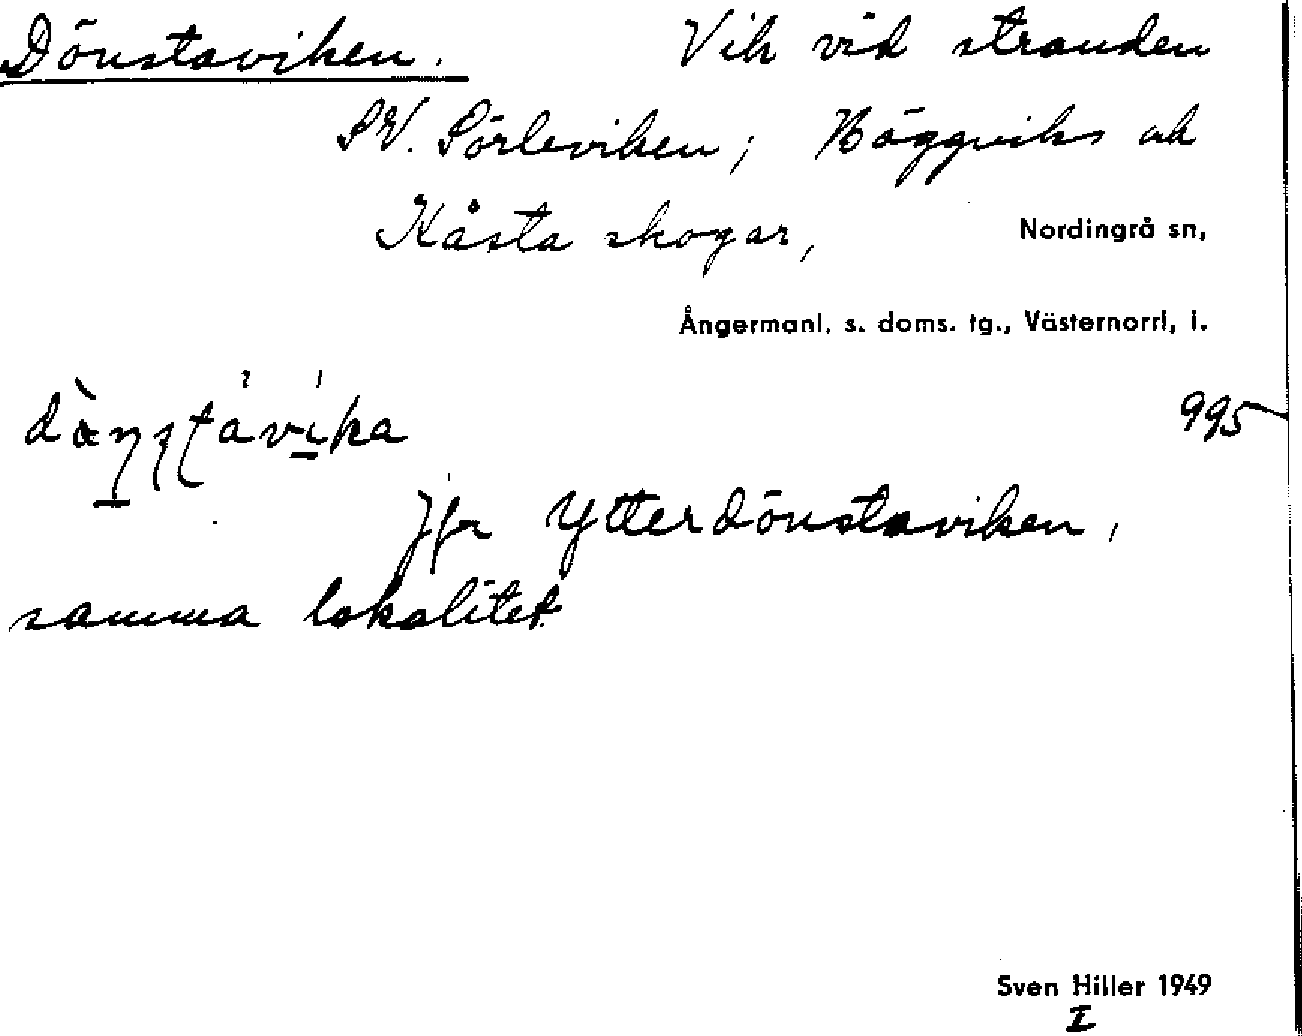 Dönstaviken. Vik vid stranden
SV. Sörleviken; Häggviks och
Kåsta skogar, Nordingrå sn,
Ångermanl. s. doms. tg., Västernorrl. l.
995
Jfr Ytterdönstaviken,
samma lokalitet
Sven Hiller 1949
I